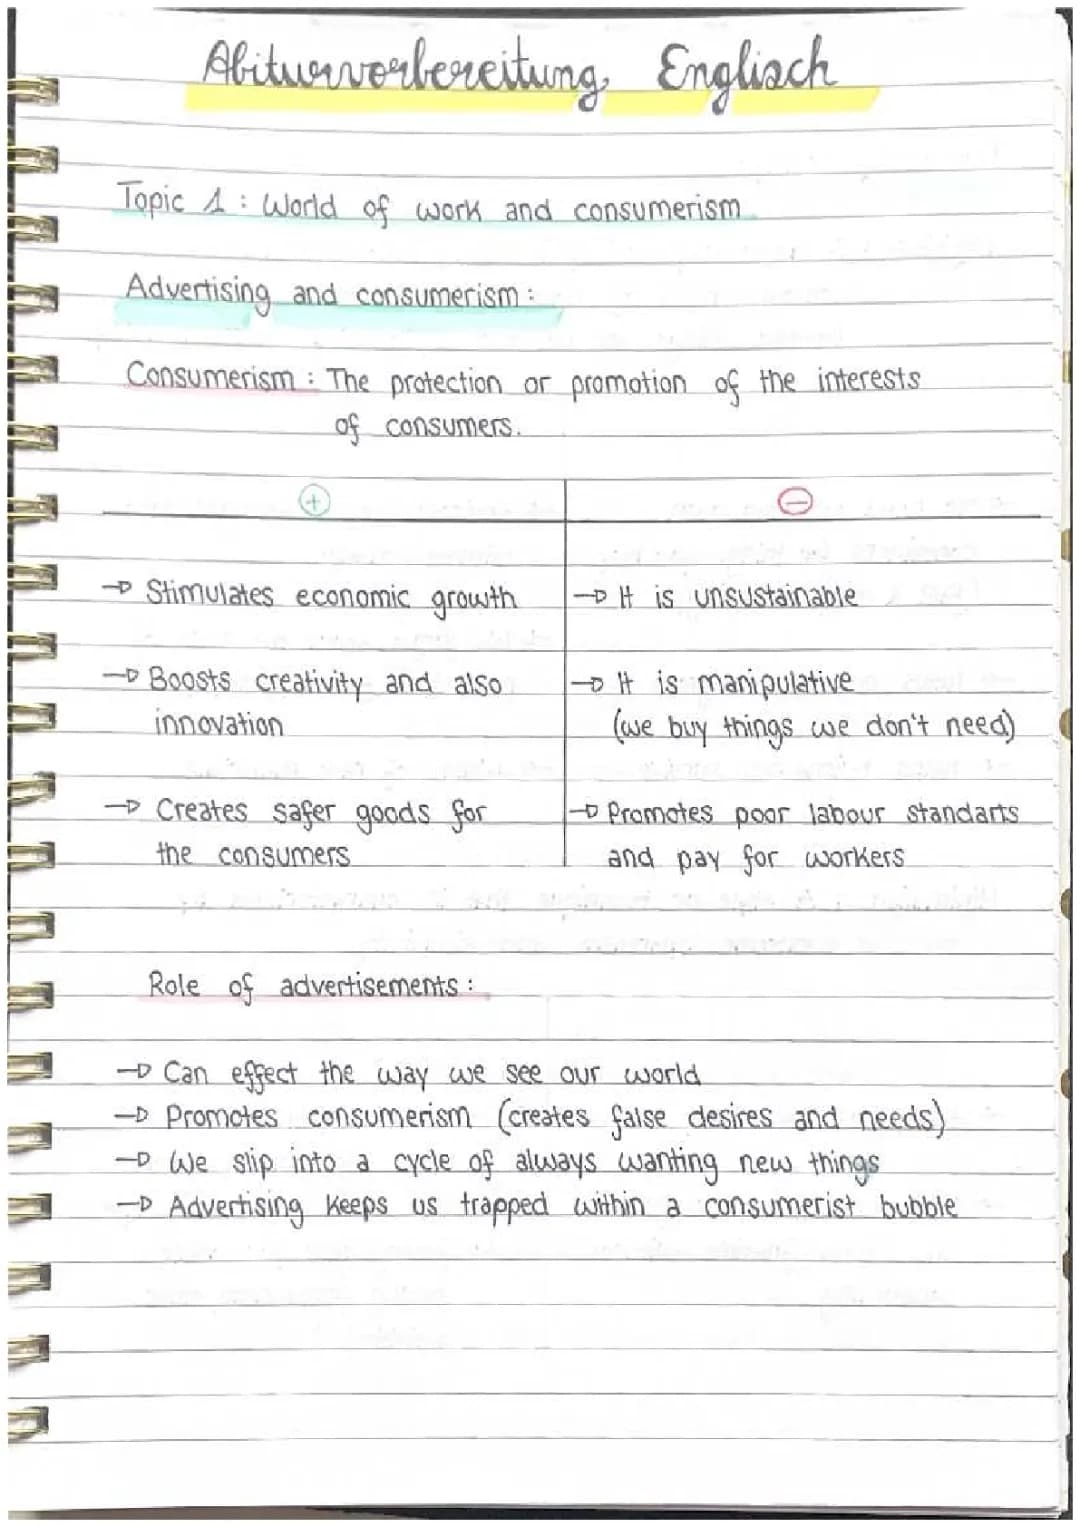 Abiturvorbereitung Englisch
Topic 1 : World of work and consumerism
Advertising and consumerism :
Consumerism : The protection or promotion of the interests
of consumers.
+ −
→ Stimulates economic growth
→ Boosts creativity and also
innovation
→ Creates safer goods for
the consumers
→ It is unsustainable
→ It is manipulative
(we buy things we don't need)
→ Promotes poor labour standarts
and pay for workers
Role of advertisements :
→ Can effect the way we see our world
→ Promotes consumerism (creates false desires and needs)
→ We slip into a cycle of always wanting new things
→ Advertising keeps us trapped within a consumerist bubble